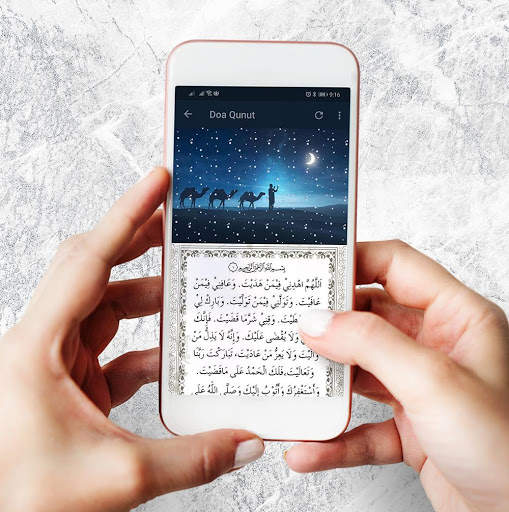 9:16
Doa Qunut
بِسْمِ اللهِ الرَّحْمٰنِ الرَّحِيْمِ
اَللّٰهُمَّ اهْدِنِيْ فِيْمَنْ هَدَيْتَ. وَعَافِنِيْ فِيْمَنْ
عَافَيْتَ. وَتَوَلَّنِيْ فِيْمَنْ تَوَلَّيْتَ. وَبَارِكْ لِيْ
وَقِنِيْ شَرَّمَا قَضَيْتَ. فَاِنَّكَ
وَلَا يُقْضَى عَلَيْكَ. وَإِنَّهُ لَا يَذِلُّ مَنْ
وَالَيْتَ وَلَا يَعِزُّ مَنْ عَادَيْتَ، تَبَارَكْتَ رَبَّنَا
وَتَعَالَيْتَ،فَلَكَ الْحَمْدُ عَلَى مَاقَضَيْتَ.
وَأَسْتَغْفِرُكَ وَأَتُوْبُ إِلَيْكَ وَصَلَّى اللهُ عَلَى